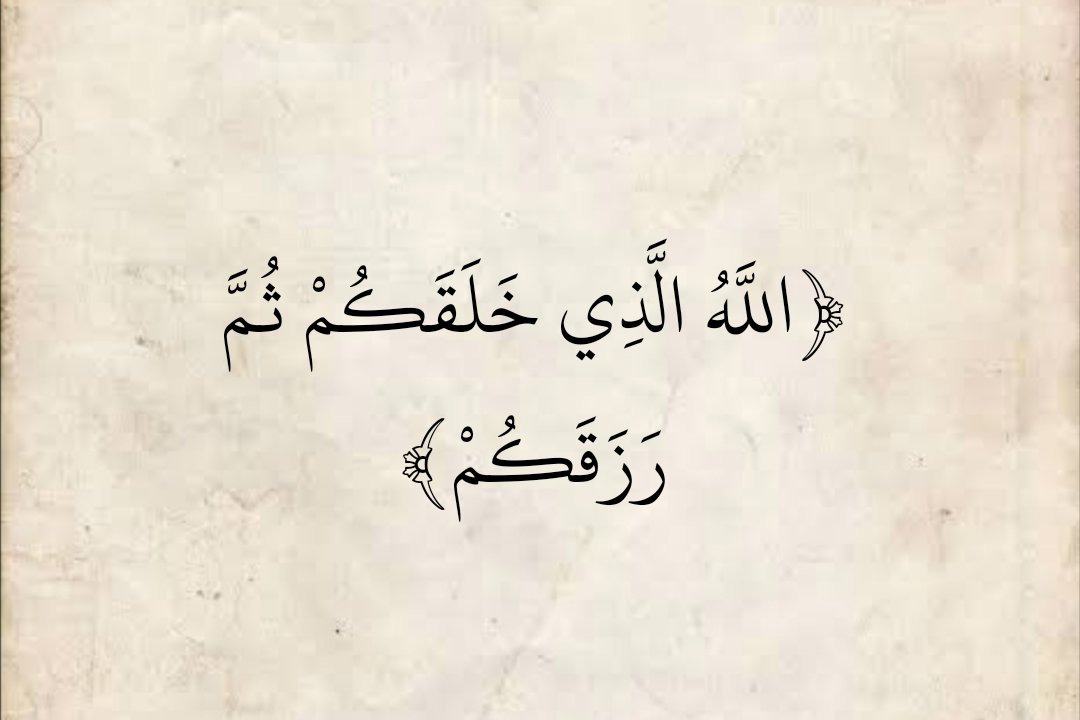 ﴿اللَّهُ الَّذِي خَلَقَكُمْ ثُمَّ
رَزَقَكُمْ﴾